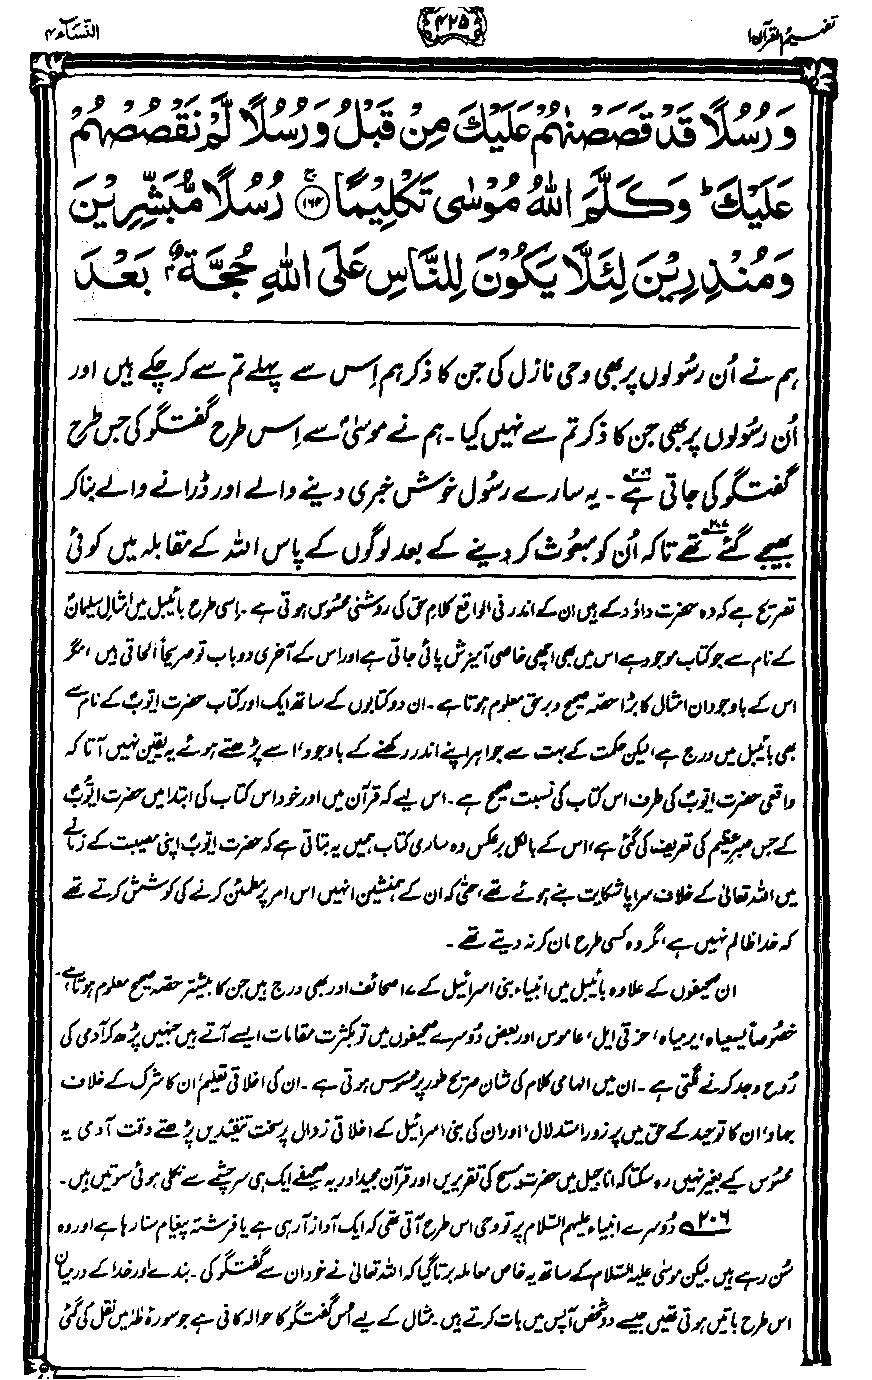 تفہیم القرآن ۱
۴۲۵
النساء ۴
وَرُسُلًا قَدْ قَصَصْنٰهُمْ عَلَيْكَ مِنْ قَبْلُ وَرُسُلًا لَّمْ نَقْصُصْهُمْ
عَلَيْكَ ؕ وَكَلَّمَ اللّٰهُ مُوْسٰى تَكْلِيْمًا ۚ﴿۱۶۴﴾ رُسُلًا مُّبَشِّرِيْنَ
وَمُنْذِرِيْنَ لِئَلَّا يَكُوْنَ لِلنَّاسِ عَلَى اللّٰهِ حُجَّةٌۢ بَعْدَ
ہم نے اُن رسُولوں پر بھی وحی نازل کی جن کا ذکر ہم اِس سے پہلے تم سے کر چکے ہیں اور
اُن رسُولوں پر بھی جن کا ذکر تم سے نہیں کیا۔ ہم نے موسٰیؑ سے اِس طرح گفتگو کی جس طرح
گفتگو کی جاتی ہے۲۰۶۔ یہ سارے رسُول خوش خبری دینے والے اور ڈرانے والے بنا کر
بھیجے گئے تھے۲۰۷ تاکہ اُن کو مبعُوث کر دینے کے بعد لوگوں کے پاس اللہ کے مقابلہ میں کوئی
تصریح ہے کہ وہ حضرت داؤد کے ہیں ان کے اندر فی الواقع کلامِ حق کی روشنی محسُوس ہوتی ہے۔ اِسی طرح بائیبل میں امثالِ سلیمانؑ
کے نام سے جو کتاب موجود ہے اس میں بھی اچھی خاصی آمیزش پائی جاتی ہے اور اس کے آخری دو باب تو صریحاً الحاقی ہیں، مگر
اس کے باوجود ان امثال کا بڑا حصہ صحیح و برحق معلوم ہوتا ہے۔ ان دو کتابوں کے ساتھ ایک اور کتاب حضرت ایّوبؑ کے نام سے
بھی بائیبل میں درج ہے، لیکن حکمت کے بہت سے جواہر اپنے اندر رکھنے کے باوجود، اسے پڑھتے ہوئے یہ یقین نہیں آتا کہ
واقعی حضرت ایّوبؑ کی طرف اس کتاب کی نسبت صحیح ہے۔ اس لیے کہ قرآن میں اور خود اس کتاب کی ابتدا میں حضرت ایّوبؑ
کے جس صبرِ عظیم کی تعریف کی گئی ہے، اس کے بالکل برعکس وہ ساری کتاب ہمیں یہ بتاتی ہے کہ حضرت ایّوبؑ اپنی مصیبت کے زمانے
میں اللہ تعالیٰ کے خلاف سراپا شکایت بنے ہوئے تھے، حتّٰی کہ ان کے ہمنشین انہیں اس امر پر مطمئن کرنے کی کوشش کرتے تھے
کہ خدا ظالم نہیں ہے، مگر وہ کسی طرح مان کر نہ دیتے تھے۔
ان صحیفوں کے علاوہ بائیبل میں انبیاء بنی اسرائیل کے ۱۷ صحائف اور بھی درج ہیں جن کا بیشتر حصّہ صحیح معلوم ہوتا ہے،
خصُوصاً یسعیاہ، یرمیاہ، حزقی ایل، عاموس اور بعض دُوسرے صحیفوں میں تو بکثرت مقامات ایسے آتے ہیں جنہیں پڑھ کر آدمی کی
رُوح وجد کرنے لگتی ہے۔ ان میں الہامی کلام کی شان صریح طور پر محسُوس ہوتی ہے۔ ان کی اخلاقی تعلیم، ان کا شرک کے خلاف
جہاد، ان کا توحید کے حق میں پر زور استدلال، اور ان کی بنی اسرائیل کے اخلاقی زوال پر سخت تنقیدیں پڑھتے وقت آدمی یہ
محسُوس کیے بغیر نہیں رہ سکتا کہ اناجیل میں حضرت مسیح کی تقریریں اور قرآن مجید اور یہ صحیفے ایک ہی سرچشمے سے نکلی ہوئی سوتیں ہیں۔
۲۰۶؎ دُوسرے انبیاء علیہم السّلام پر تو وحی اس طرح آتی تھی کہ ایک آواز آ رہی ہے یا فرشتہ پیغام سنا رہا ہے اور وہ
سُن رہے ہیں۔ لیکن موسیٰ علیہ السّلام کے ساتھ یہ خاص معاملہ برتا گیا کہ اللہ تعالیٰ نے خود ان سے گفتگو کی۔ بندے اور خدا کے درمیان
اس طرح باتیں ہوتی تھیں جیسے دو شخص آپس میں بات کرتے ہیں۔ مثال کے لیے اُس گفتگو کا حوالہ کافی ہے جو سورۂ طٰہٰ میں نقل کی گئی